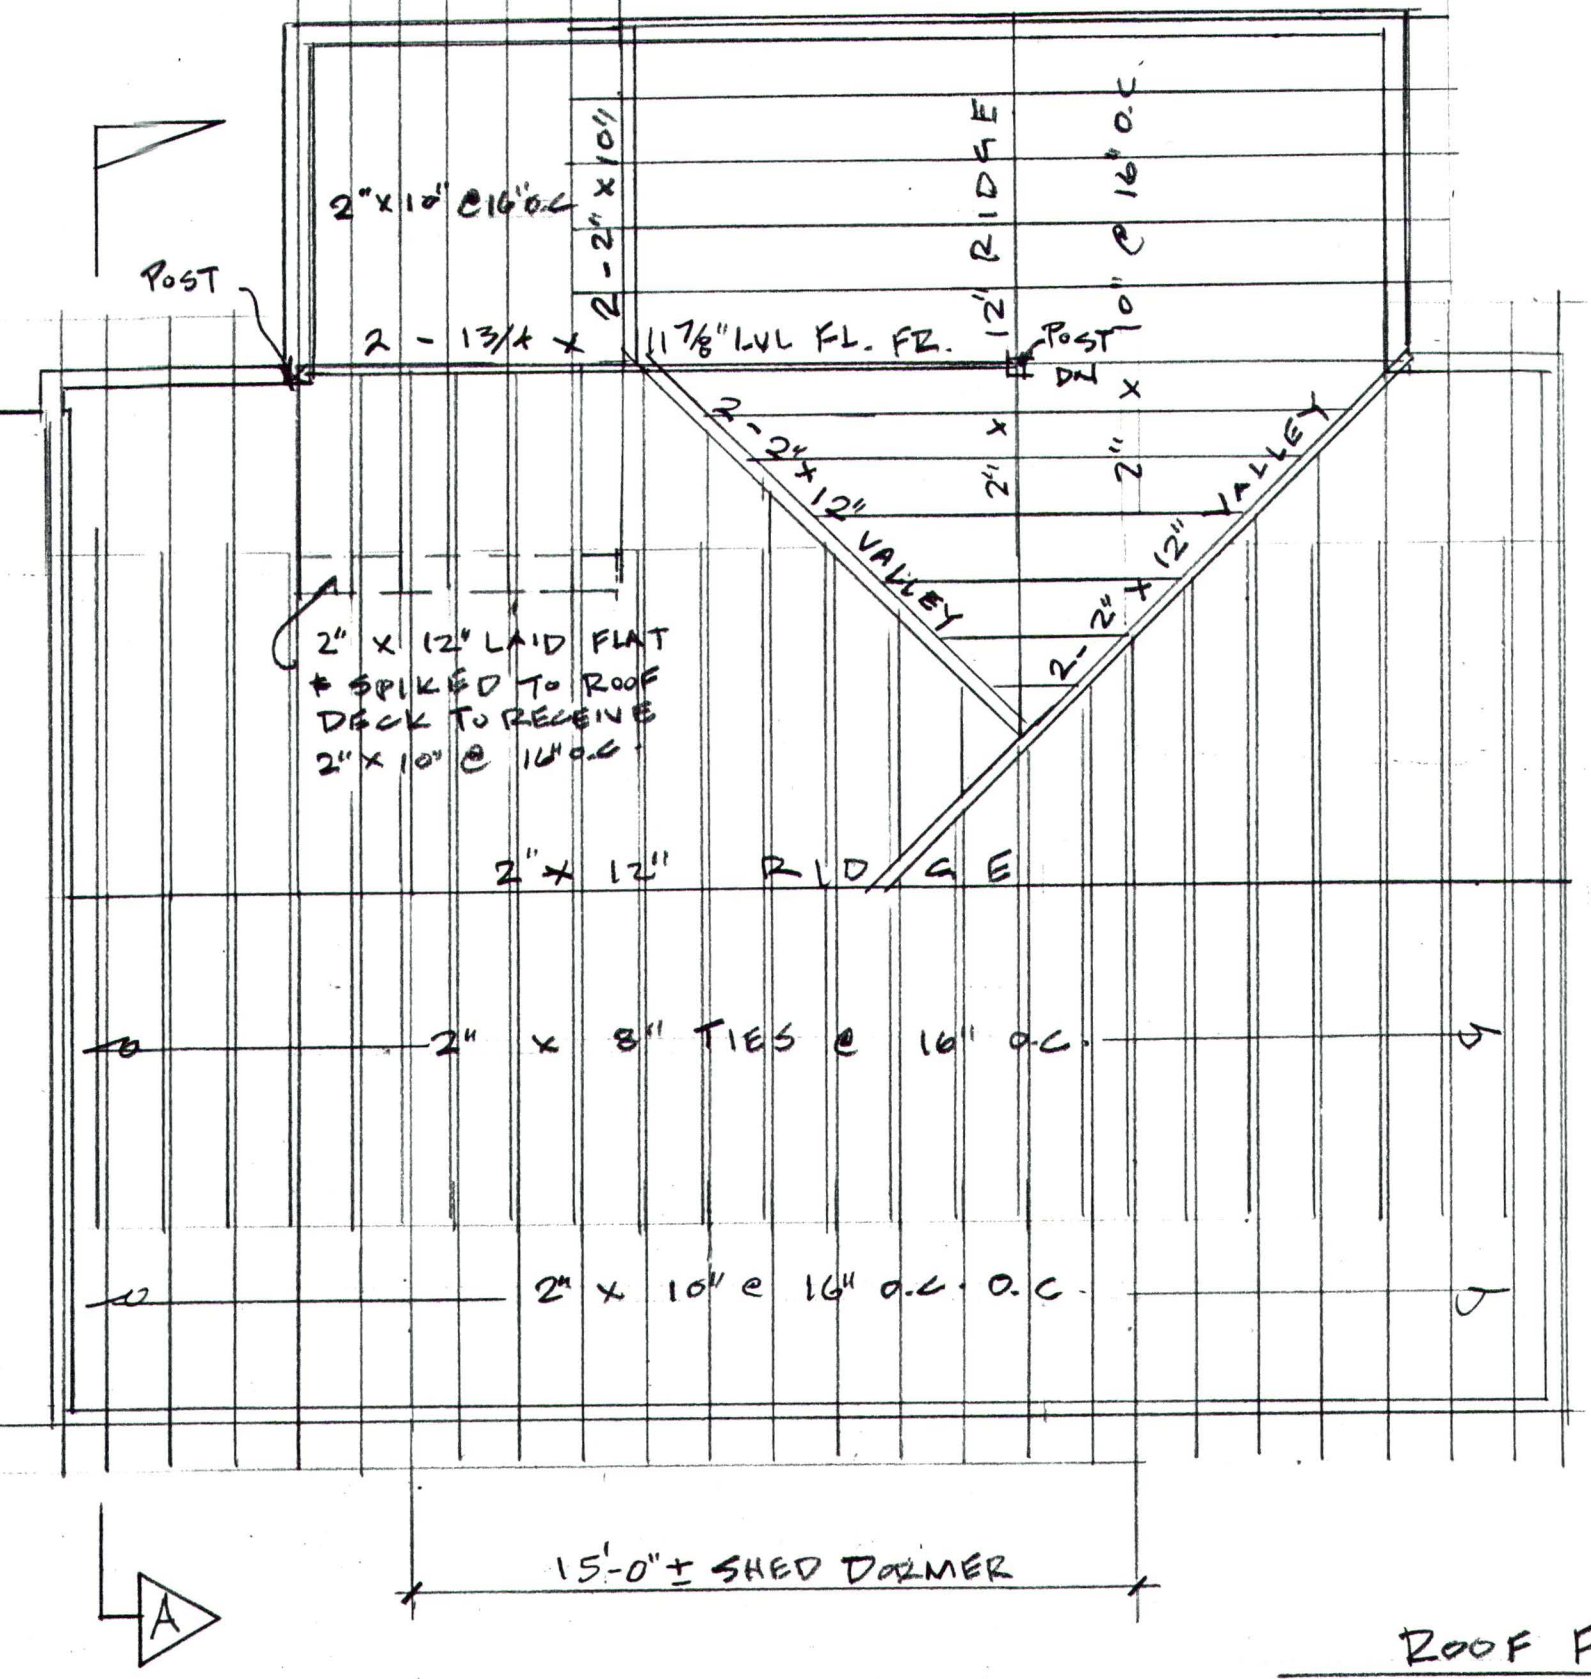 2" X 10" @ 16" O.C
2 - 2" X 10"
2" X 12' RIDGE
2" X 10" @ 16" O.C
POST
2 - 1 3/4 X 11 7/8" LVL FL. FR.
POST
DN
2 - 2" X 12" VALLEY
2 - 2" X 12" VALLEY
2" X 12" LAID FLAT
& SPIKED TO ROOF
DECK TO RECEIVE
2" X 10" @ 16" O.C.
2" X 12" RIDGE
2" X 8" TIES @ 16" O.C.
2" X 10" @ 16" O.C. O.C.
15'-0" ± SHED DORMER
A
ROOF F